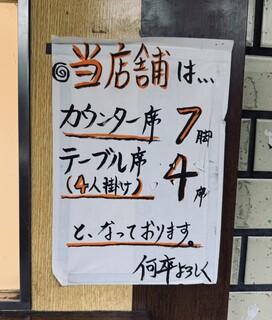 当店舗は…
カウンター席 7脚
テーブル席 4席
(4人掛け)
と、なっております。
何卒よろしく